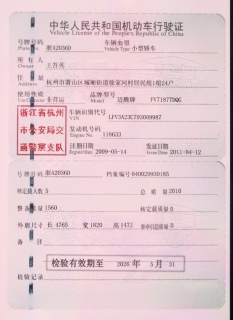 中华人民共和国机动车行驶证
Vehicle License of the People's Republic of China
号牌号码 浙A20360 车辆类型 小型轿车
Plate No. Vehicle Type
所有人
Owner
住址 杭州市萧山区
Address
使用性质 非营运 品牌型号 迈腾牌 FV7187TDQG
Use Character Model
浙江省杭州
市公安局交
通警察支队
车辆识别代号 LFV3A23C793009987
VIN
发动机号码 118633
Engine No.
注册日期 2009-05-14 发证日期 2011-04-12
Register Date Issue Date
号牌号码 浙A20360 档案编号 040029930185
核定载人数 5 总质量 2010
整备质量 1560 核定载质量 0
外廓尺寸 长 4765 宽 1820 高 1472 0
备注
检验有效期至 2026 年 5 月 31
检验记录